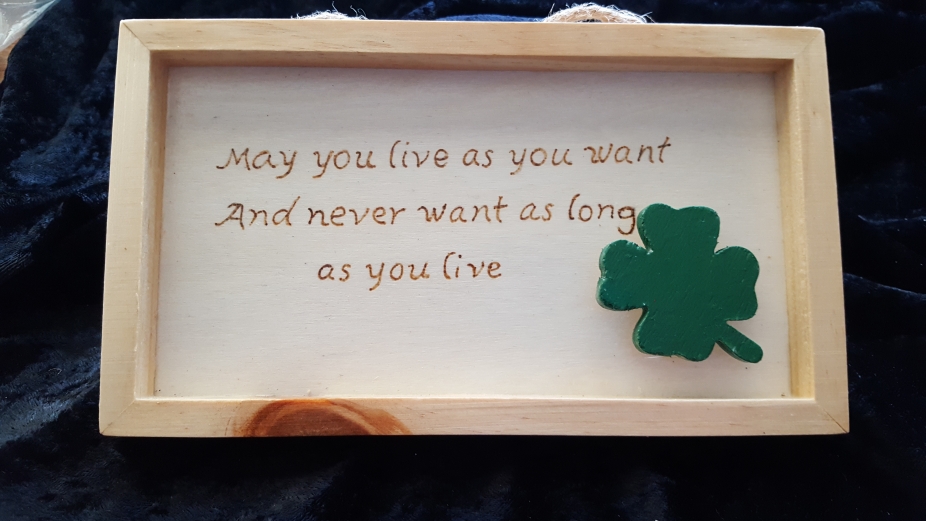 May you live as you want
And never want as long
as you live